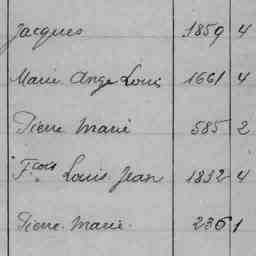 Jacques 1859 4
Marie Ange Louis 1661 4
Pierre Marie 585 2
Fcois Louis Jean 1832 4
Pierre Marie 236 1